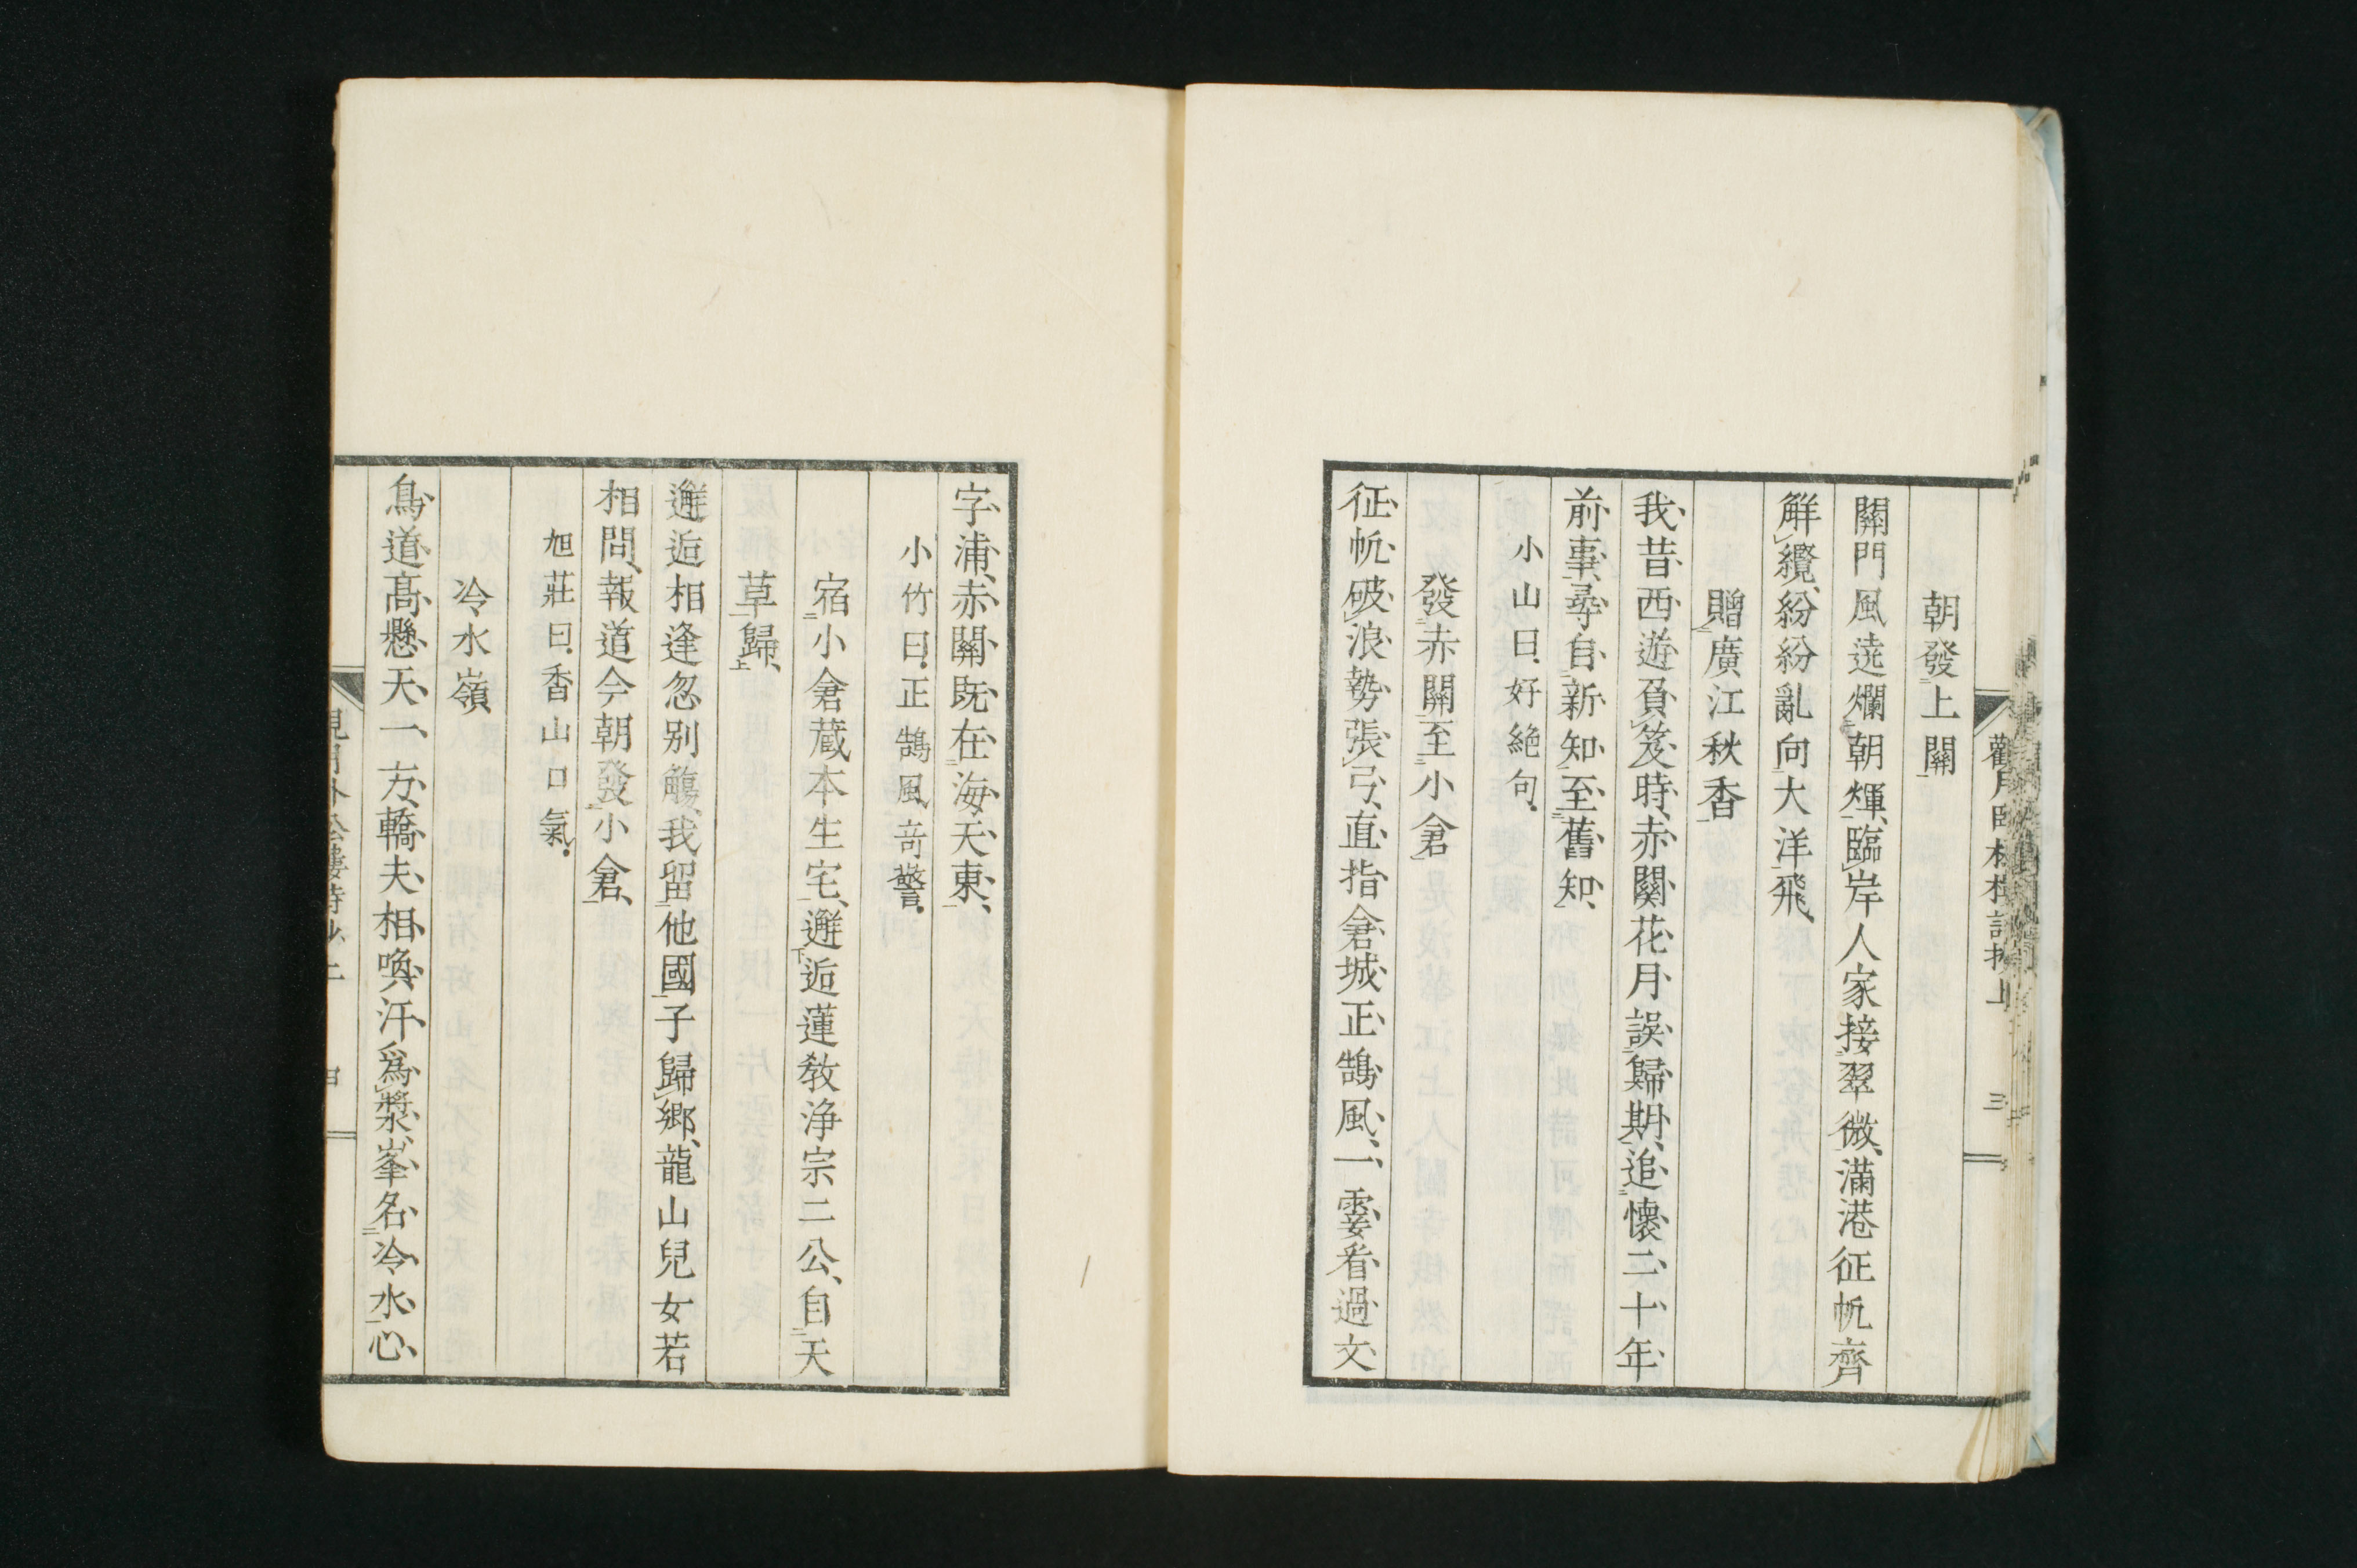 朝發上關
關門風遶爛朝輝、臨岸人家接翠微、滿港征帆齊
解纜、紛紛亂向大洋飛、
贈廣江秋香
我昔西遊負笈時、赤關花月誤歸期、追懷二十年
前事、尋自新知至舊知、
小山曰、好絶句、
發赤關至小倉
征帆破浪勢張弓、直指倉城正鵠風、一霎看過文
字浦、赤關既在海天東、
小竹曰、正鵠風奇警、
宿小倉蔵本生宅、邂逅蓮教浄宗二公、自天
草歸、
邂逅相逢忽別觴、我留他國子歸郷、龍山兒女若
相問、報道今朝發小倉、
旭莊曰、香山口氣、
冷水嶺
鳥道高懸天一方、轎夫相喚汗爲漿、峯名冷水心